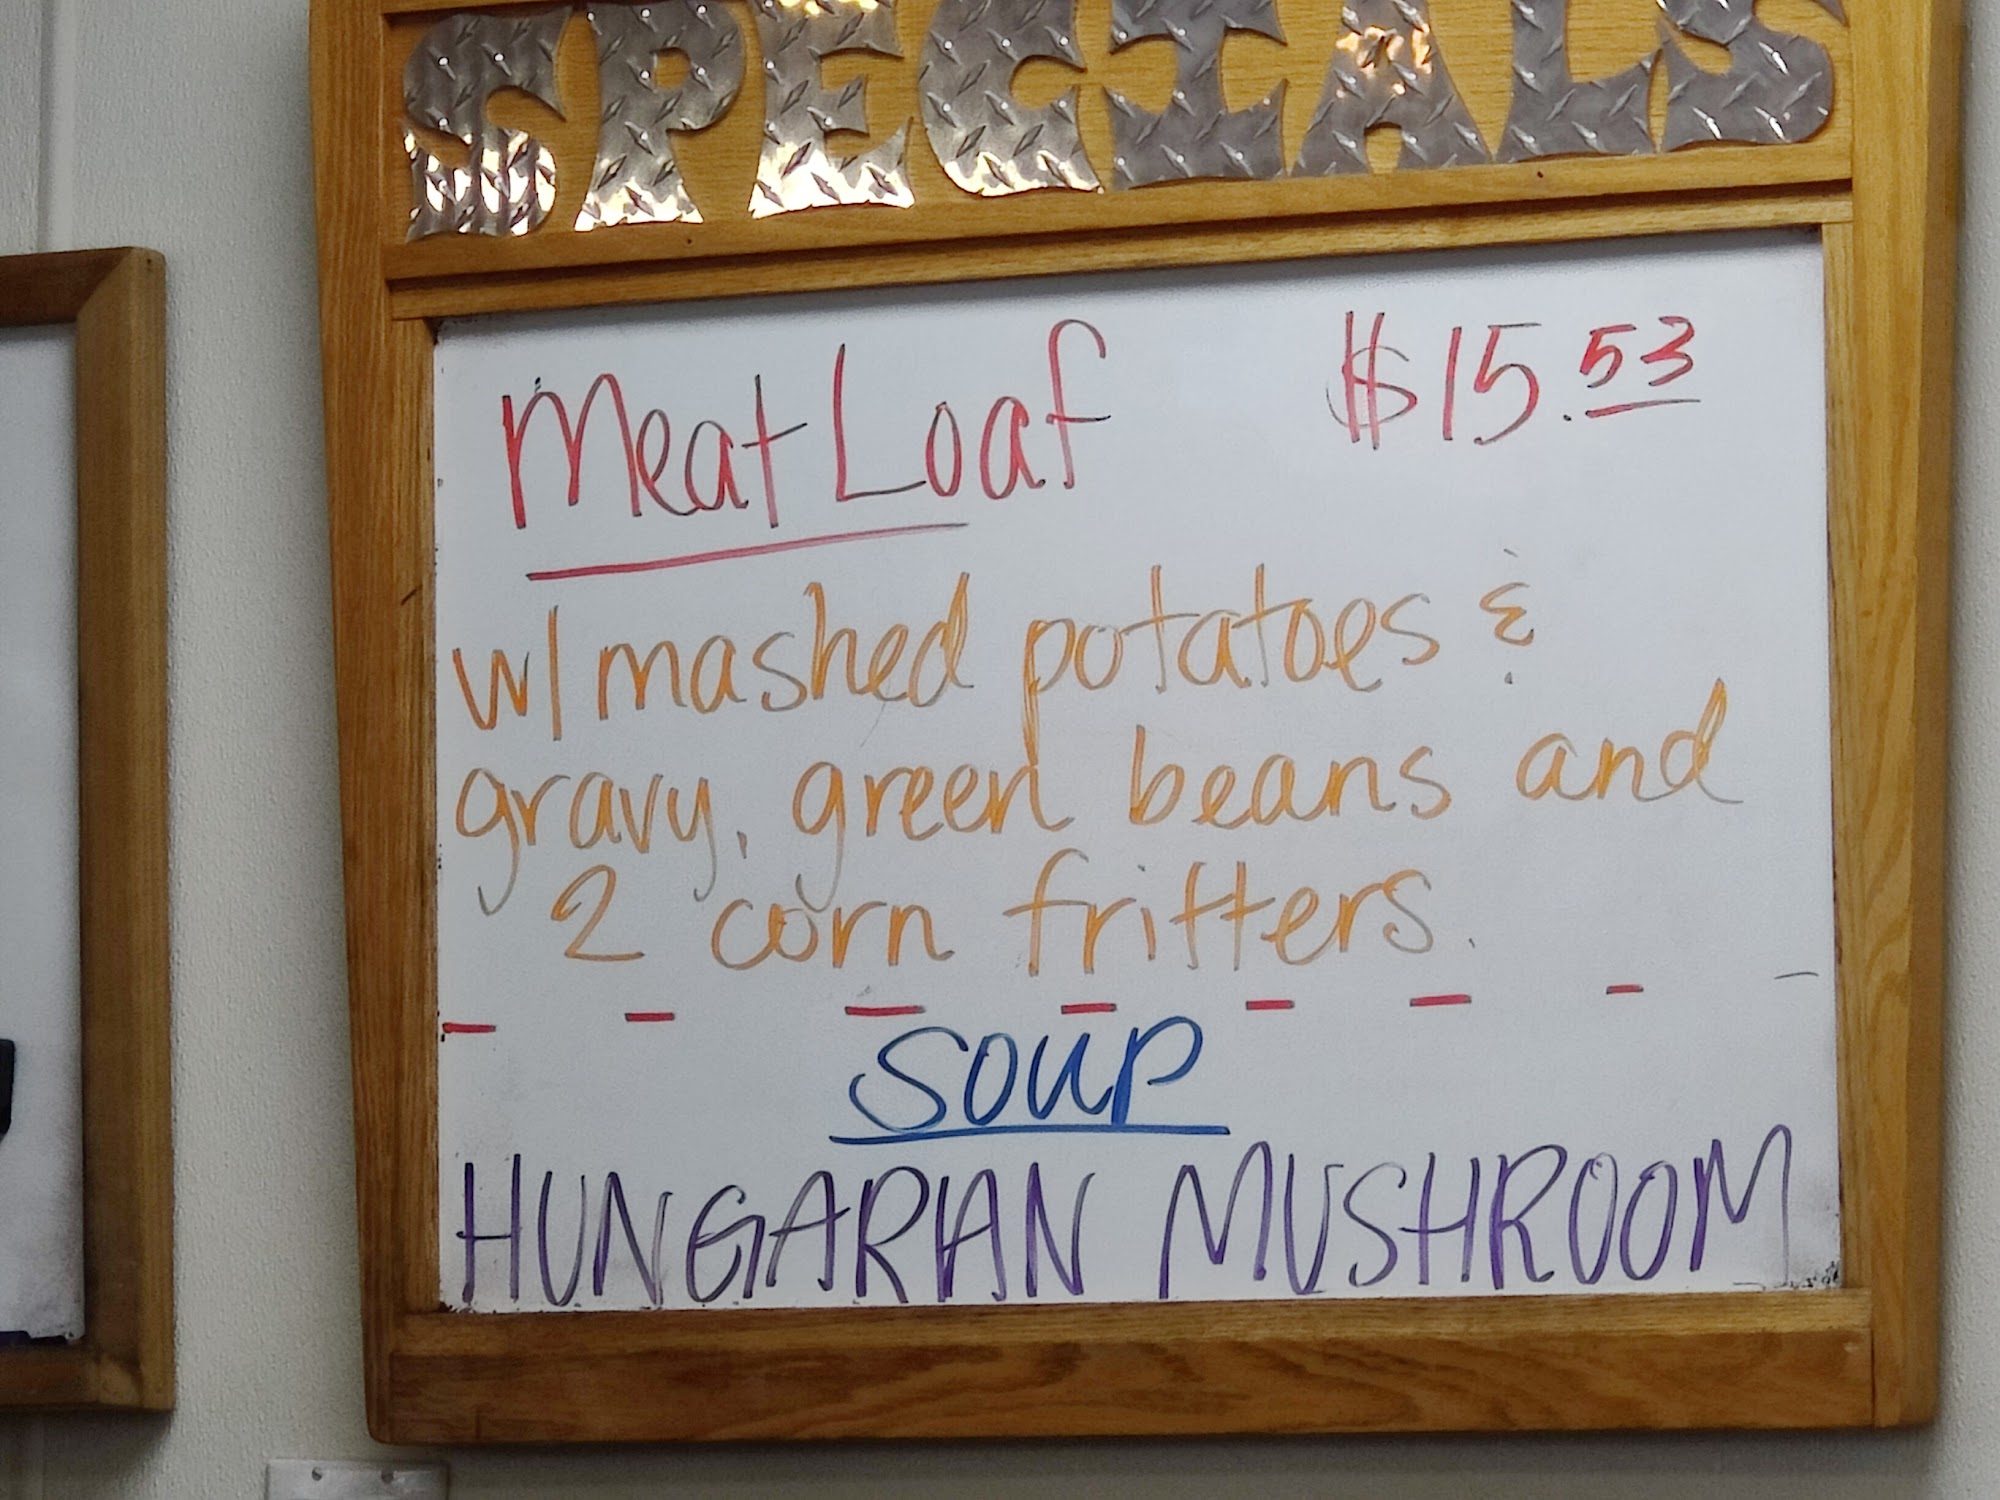 SPECIALS
Meat Loaf $15.53
w/ mashed potatoes &
gravy, green beans and
2 corn fritters.
SOUP
HUNGARIAN MUSHROOM